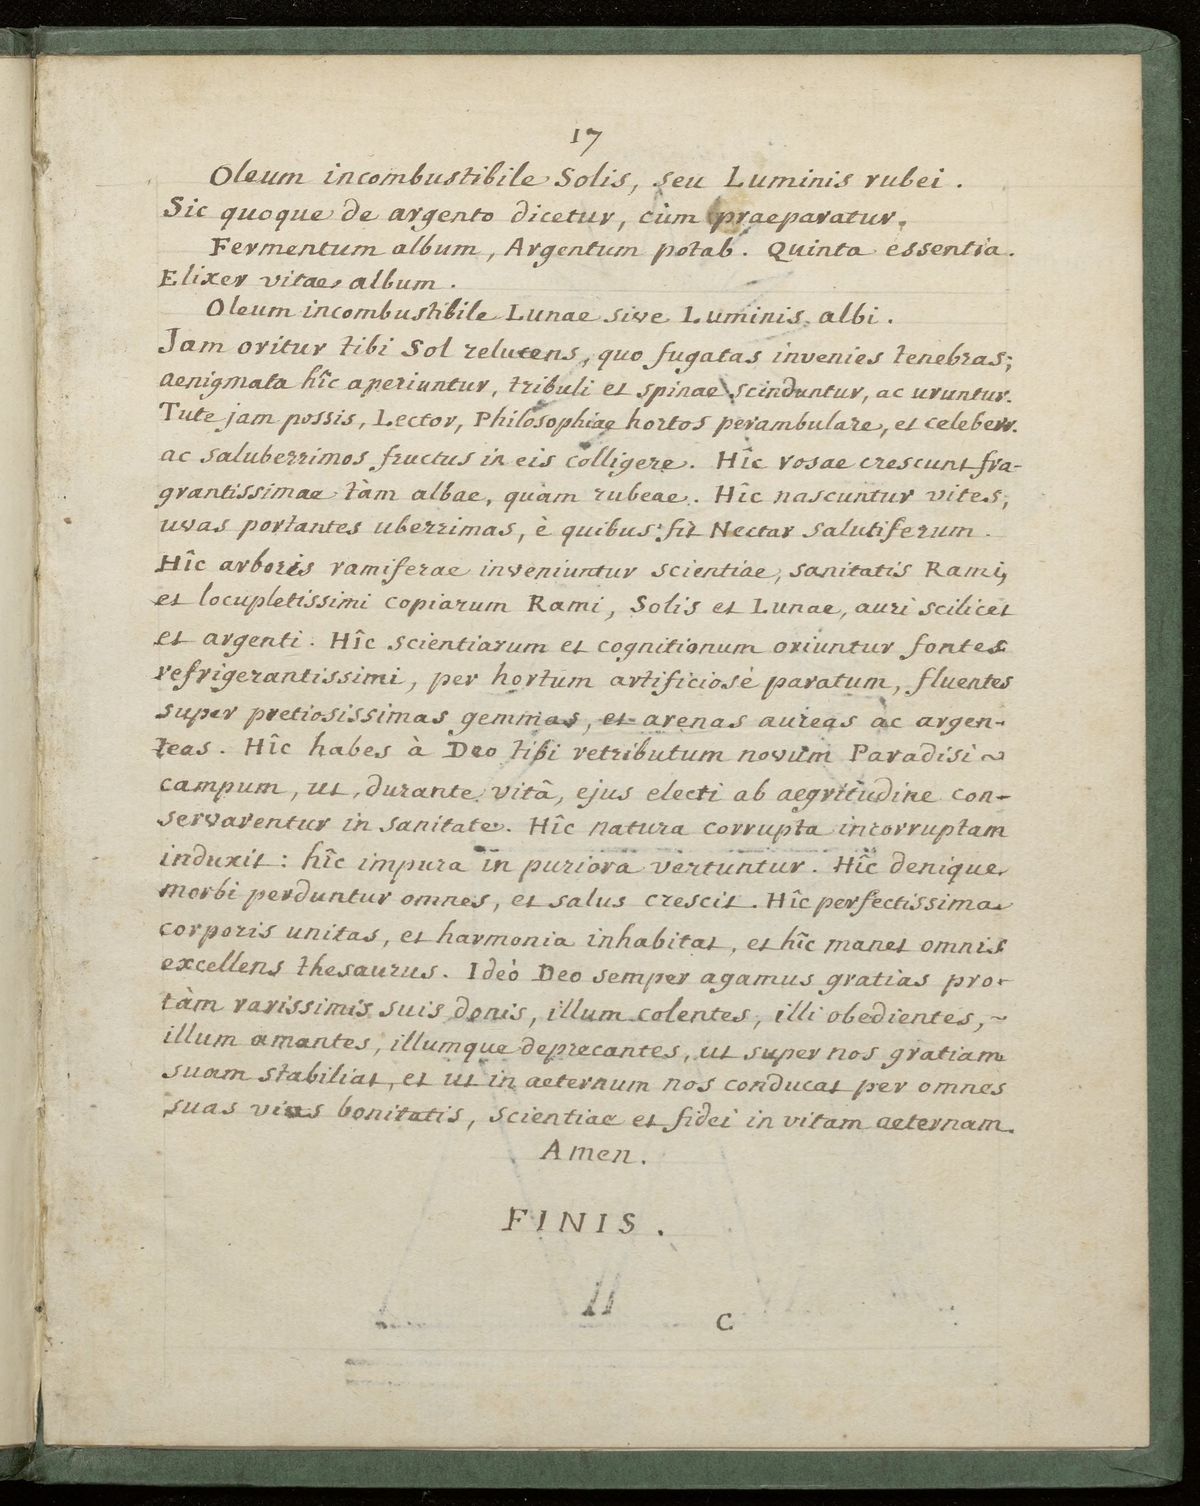 17
Oleum incombustibile Solis, seu Luminis rubei.
Sic quoque de argento dicetur, cùm praeparatur.
Fermentum album, Argentum potab. Quinta essentia.
Elixer vitae album.
Oleum incombustibile Lunae sive Luminis albi.
Jam oritur tibi Sol relucens, quo fugatas invenies tenebras;
aenigmata hîc aperiuntur, tribuli et spinae scinduntur, ac uruntur.
Tute jam possis, Lector, Philosophiae hortos perambulare, et celeberr.
ac saluberrimos fructus in eis colligere. Hîc rosae crescunt fra-
grantissimae tàm albae, quam rubeae. Hîc nascuntur vites,
uvas portantes uberrimas, è quibus fit Nectar salutiferum.
Hîc arboris ramiferae inveniuntur scientiae, sanitatis Rami,
et locupletissimi copiarum Rami, Solis et Lunae, auri scilicet
et argenti. Hîc scientiarum et cognitionum oriuntur fontes
refrigerantissimi, per hortum artificiosè paratum, fluentes
super pretiosissimas gemmas, et arenas aureas ac argen-
teas. Hîc habes à Deo tibi retributum novum Paradisi ~
campum, ut, durante vitâ, ejus electi ab aegritudine con-
servarentur in sanitate. Hîc natura corrupta incorruptam
induxit: hîc impura in puriora vertuntur. Hîc denique
morbi perduntur omnes, et salus crescit. Hîc perfectissima
corporis unitas, et harmonia inhabitat, et hîc manet omnis
excellens thesaurus. Ideò Deo semper agamus gratias pro
tàm rarissimis suis donis, illum colentes, illi obedientes, ~
illum amantes, illumque deprecantes, ut super nos gratiam
suam stabiliat, et ut in aeternum nos conducat per omnes
suas vias bonitatis, scientiae et fidei in vitam aeternam.
Amen.
FINIS.
C